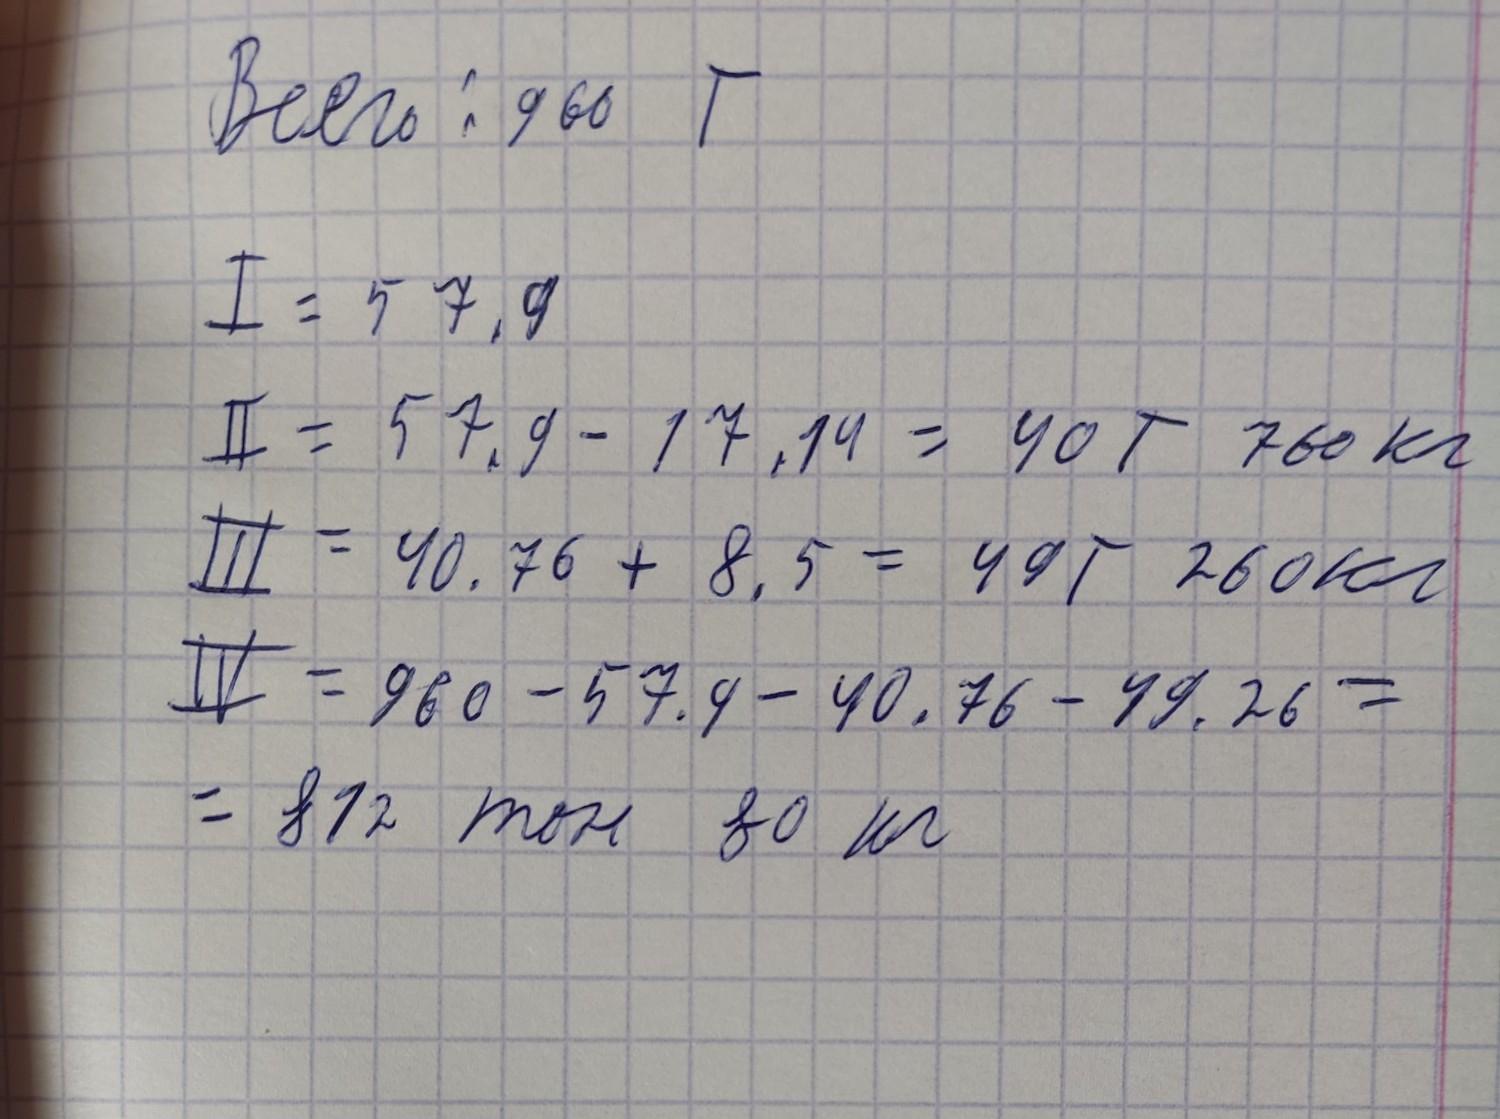 Всего: 960 т
I = 57.9
II = 57.9 - 17.14 = 40т 760 кг
III = 40.76 + 8.5 = 49т 260кг
IV = 960 - 57.9 - 40.76 - 49.26 =
= 812 тон 80 кг